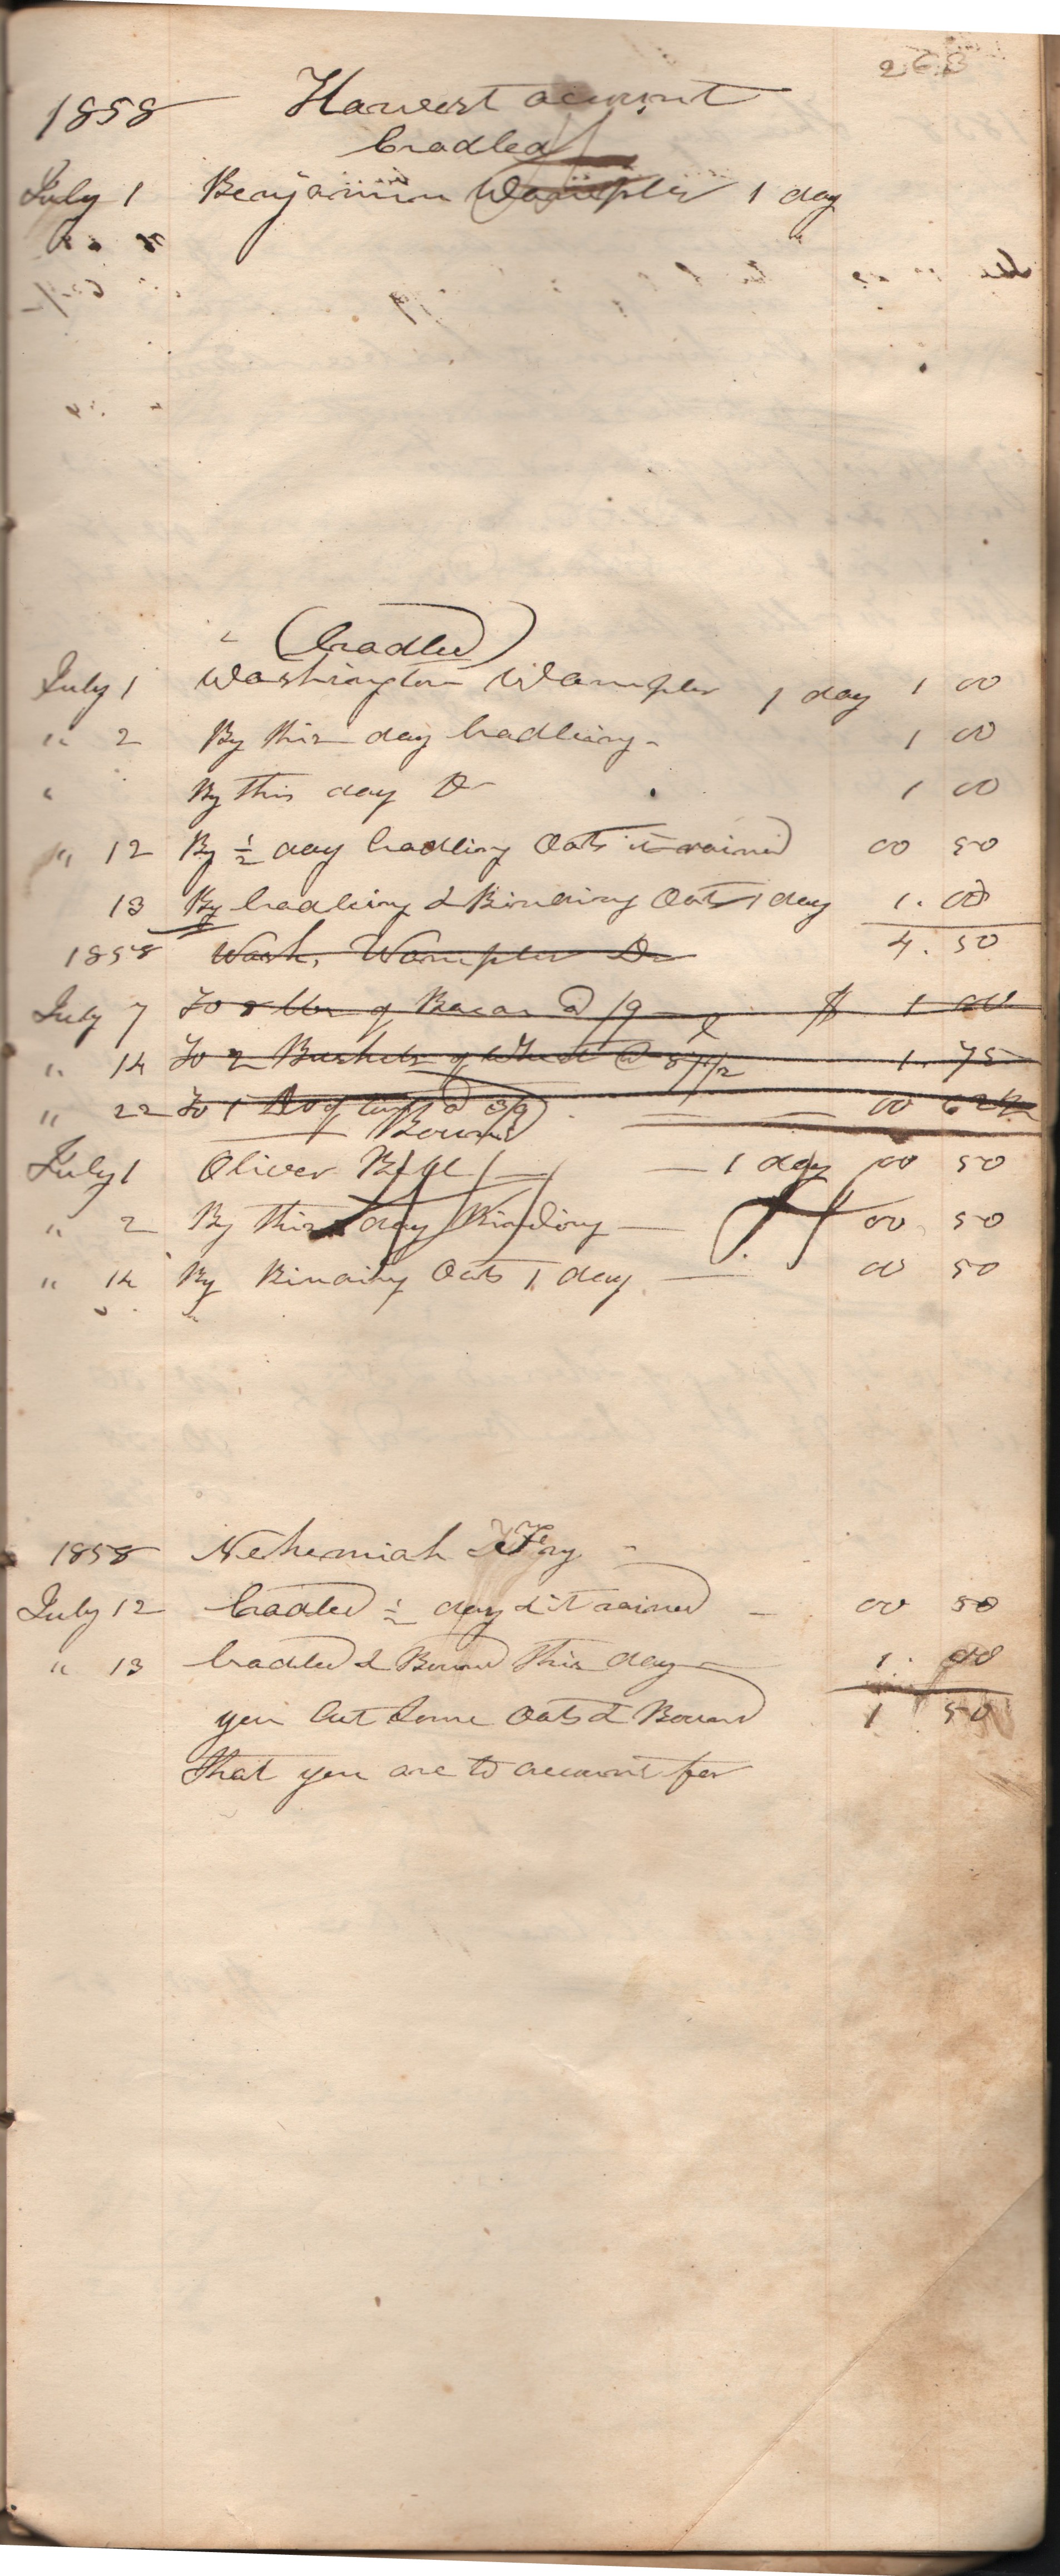 263
1858 Harvest account
Cradled
July 1 Benjamin Wampler 1 day
" (Cradled)
July 1 Washington Wampler 1 day 1 00
" 2 By this day Cradling 1 00
" By this day Do 1 00
" 12 By ½ day Cradling Oats it rained 00 50
13 By Cradling & Binding Oats 1 day 1.00
1858 Wash. Wampler Dr 4.50
July 7 To 8 lbs of Bacon @ /9 $ 1 00
" 14 To 2 Bushels of Wheat @ 87½ 1.75
" 22 To 1 of @ 3/9 00 62½
Bound
July 1 Oliver 1 day 00 50
" 2 By this day Binding 00 50
" 14 By Binding Oats 1 day 00 50
1858 Nehemiah Fry
July 12 Cradled ½ day & it rained 00 50
" 13 Cradled & Bound this day 1.00
you Cut Some Oats & Bound 1 50
that you are to account for